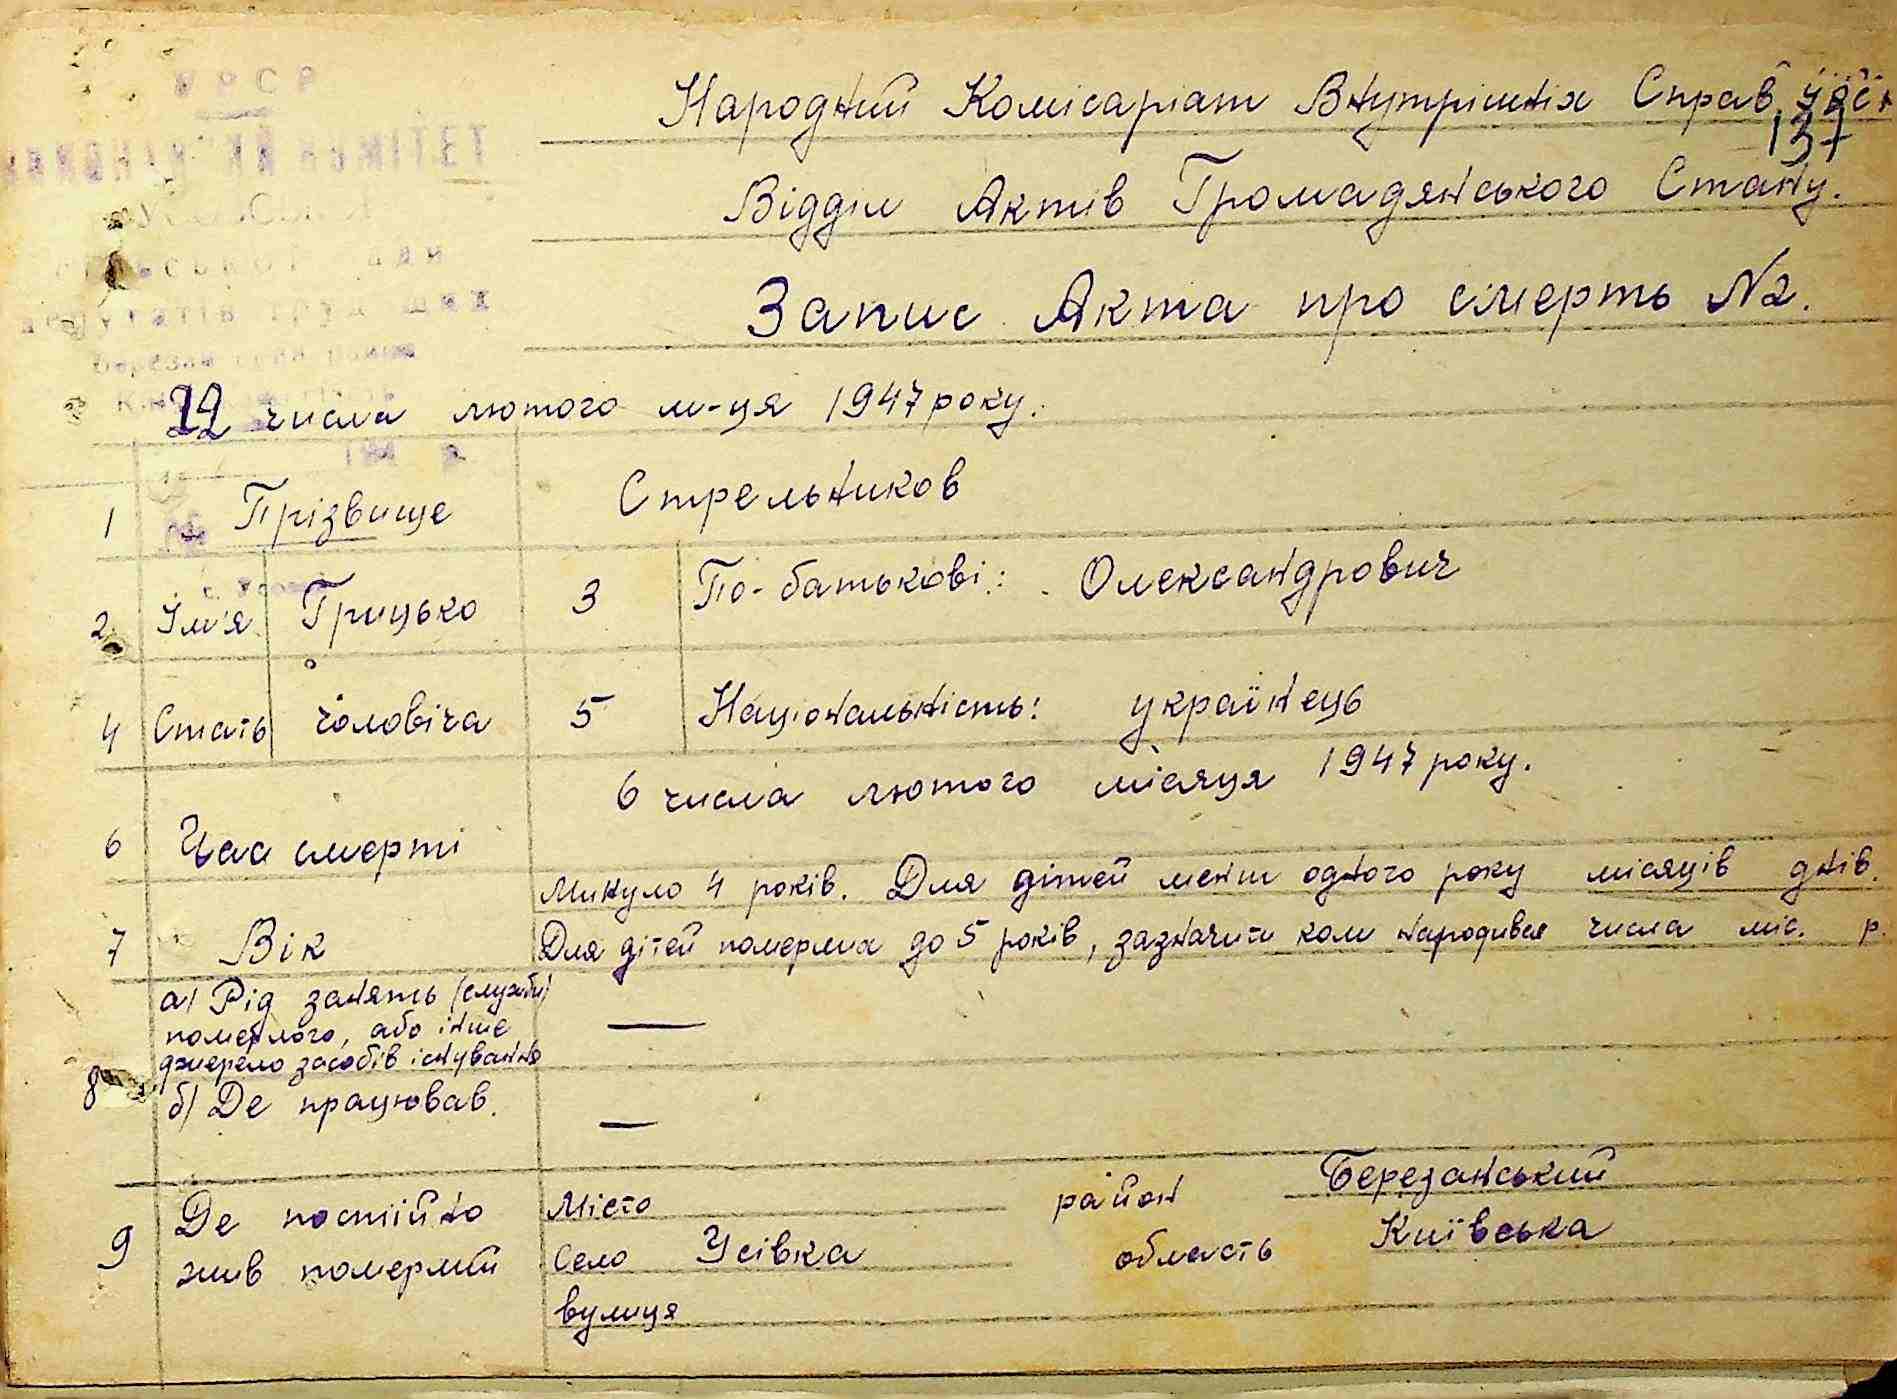 Народний Комісаріат Внутрішніх Справ
137
Відділ Актів Громадянського Стану.
Запис Акта про смерть №2.
числа лютого м-ця 1947 року.
1 Прізвище Стрельников
2 Їм'я Грицько 3 По-батькові: Олександрович
4 Стать чоловіча 5 Національність: українець
6 Час смерті 6 числа лютого місяця 1947 року.
7 Вік Минуло 4 років. Для дітей менш одного року місяців днів.
Для дітей померлих до 5 років, зазначити коли народився числа міс. р.
8 а) Рід занять (служби)
померлого, або інше
джерело засобів існування —
б) Де працював. —
9 Де постійно
жив померлий
Місто район Березанський
Село Усівка область Київська
вулиця